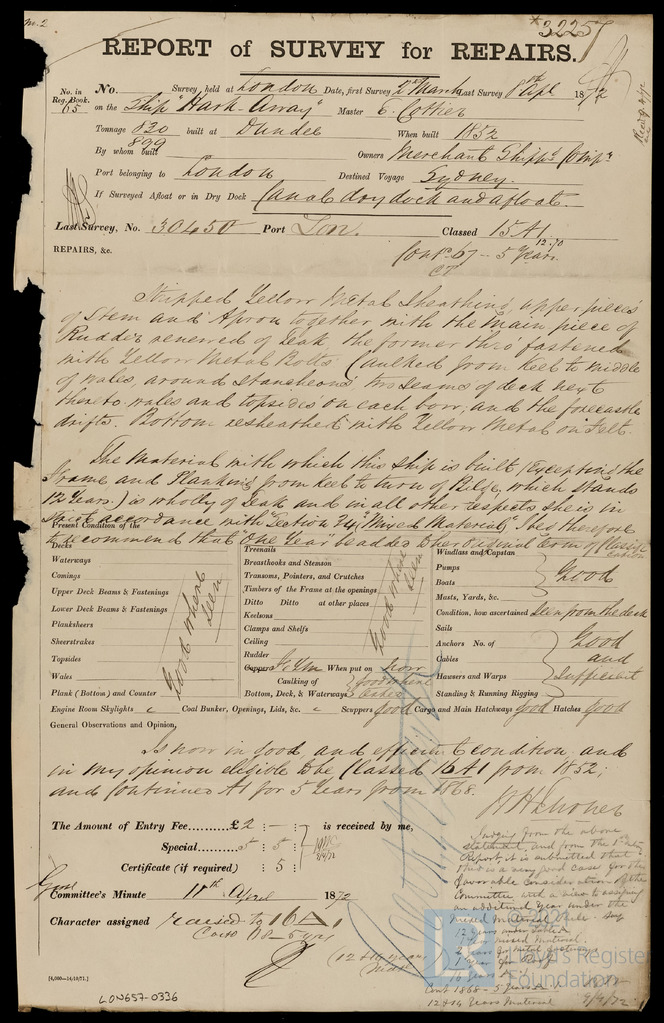 No. 2
*32257
REPORT of SURVEY for REPAIRS.
No. in Reg. Book. 65
No. Survey, held at London Date, first Survey 2nd March Last Survey 8th Apl 1872
on the Ship "Hark Away" Master C. Cottier
Tonnage 820 built at Dundee When built 1852
899
By whom built Owners Merchant Shipg Compy
Port belonging to London Destined Voyage Sydney.
If Surveyed Afloat or in Dry Dock Canal dry dock and afloat.
Last Survey, No. 30450 Port Lon. Classed 15 A1
12.70
REPAIRS, &c. Cont 67 - 5 Years
Stripped Yellow Metal Sheathing, upper pieces
of Stem and Apron together with the main piece of
Rudder renewed of Teak, the former thro' fastened
with Yellow Metal Bolts. Caulked from Keel to middle
of wales, around stancheons, two seams of deck next
thereto, wales and topsides on each bow, and the forecastle
drifts. Bottom resheathed with Yellow Metal on Felt.
The Material with which this Ship is built, (excepting the
Frame and Planking from Keel to turn of Bilge, which stands
12 Years.) is wholly of Teak and in all other respects she is in
strict accordance with "Section 34 "Mixed Material", I beg therefore
to recommend that "One Year" be added to her Original term of Classification
Present Condition of the
Decks
Waterways
Comings
Upper Deck Beams & Fastenings
Lower Deck Beams & Fastenings
Planksheers
Sheerstrakes
Topsides
Wales
Plank (Bottom) and Counter
Good where seen
Treenails
Breasthooks and Stemson
Transoms, Pointers, and Crutches
Timbers of the Frame at the openings
Ditto Ditto at other places
Keelsons
Clamps and Shelfs
Ceiling
Rudder
Good where seen
Copper F & YM When put on now
Caulking of Bottom, Deck, & Waterways
Windlass and Capstan
Pumps
Boats
Masts, Yards, &c.
Good
Condition, how ascertained Seen from the deck
Sails
Anchors No. of
Cables
Hawsers and Warps
Standing & Running Rigging
Good and Sufficient
Engine Room Skylights Coal Bunker, Openings, Lids, &c. Scuppers Good Cargo and Main Hatchways Good Hatches Good
General Observations and Opinion,
Is now in good, and efficient condition and
in my opinion eligible to be Classed 16 A1 from 1852;
and Continued A1 for 5 Years from 1868.
The Amount of Entry Fee.........£ 2 : - : is received by me,
Special...... 5 : 5 :
Certificate (if required) : 5 :
Committee's Minute 11th April 1872
Character assigned raised to 16 A1
Cont 68 - 5 yrs
Judging from the above
statement, and from the 1st
Report, it is submitted that
this is a very good case for the
favorable consideration of the
Committee with a view to assigning
an additional Year under the
mixed Material Rule. Say
12 Years under Table A
mixed Material.
16 Years
Cont 1868 - 5 Years
12 & 14 Years Material
9/4/72
[4,000—14/10/71.]
LON657-0336
LR
Lloyd's Register
Foundation